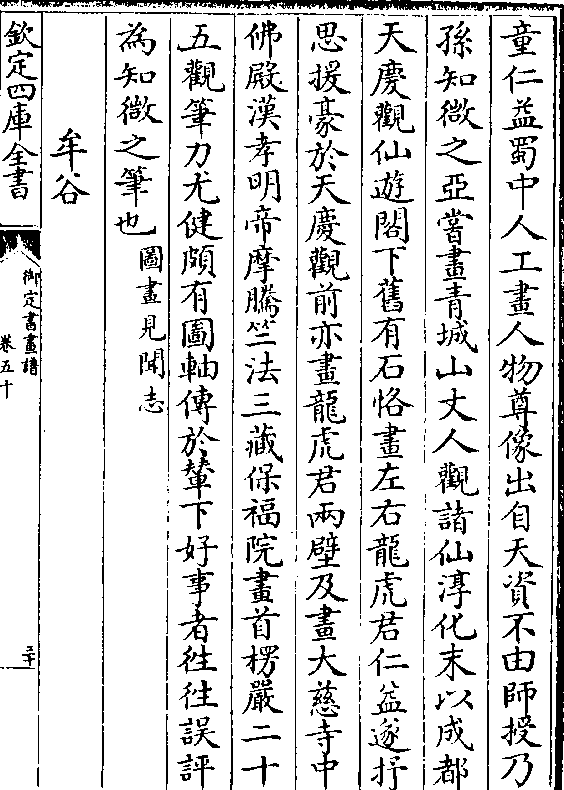 童仁益蜀中人工畫人物尊像出自天資不由師授乃
孫知微之亞嘗畫青城山丈人觀諸仙淳化末以成都
天慶觀仙遊閣下舊有石恪畫左右龍虎君仁益遂抒
思援豪於天慶觀前亦畫龍虎君兩壁及畫大慈寺中
佛殿漢孝明帝摩騰竺法三藏保福院畫首楞嚴二十
五觀筆力尤健頗有圖軸傳於輦下好事者往往誤評
為知微之筆也圖畫見聞志
牟谷
欽定四庫全書
御定書畫譜
卷五十
二十